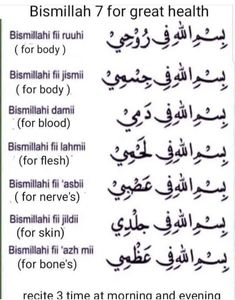 Bismillah 7 for great health
Bismillahi fii ruuhi
( for body )
بِسْمِ اللّٰهِ فِي رُوْحِيْ
Bismillahi fii jismii
( for body )
بِسْمِ اللّٰهِ فِي جِسْمِيْ
Bismillahi damii
(for blood)
بِسْمِ اللّٰهِ فِي دَمِي
Bismillahi fii lahmii
(for flesh)
بِسْمِ اللّٰهِ فِي لَحْمِيْ
Bismillahi fii 'asbii
( for nerve's)
بِسْمِ اللّٰهِ فِي عَصَبِيْ
Bismillahi fii jildii
(for skin)
بِسْمِ اللّٰهِ فِي جِلْدِي
Bismillahi fii 'azh mii
(for bone's)
بِسْمِ اللّٰهِ فِي عَظْمِيْ
recite 3 time at morning and evening